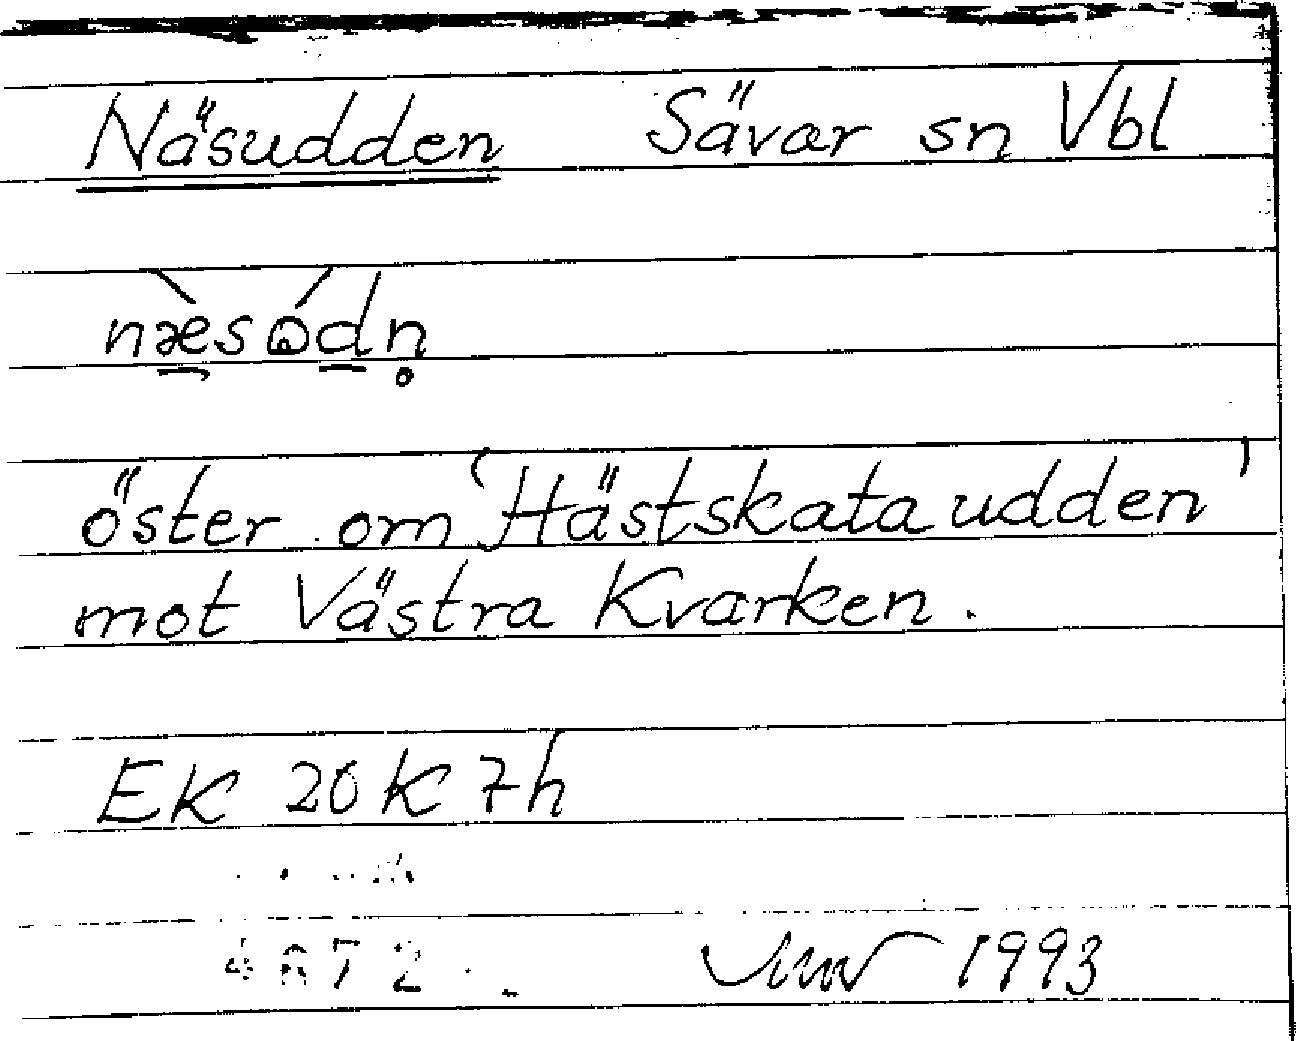 Näsudden Sävar sn Vbl
næ̀sɷ́dn̥
öster om 'Hästskataudden'
mot Västra Kvarken.
EK 20K 7h
1993